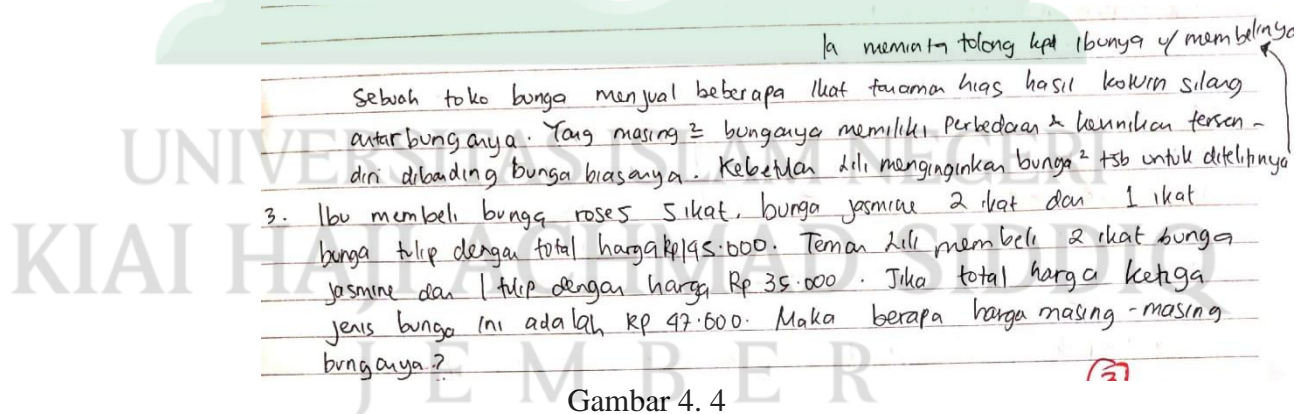 Ia meminta tolong kpd Ibunya u/ membelinya
Sebuah toko bunga menjual beberapa Ikat tanaman hias hasil kawin silang
antar bunganya. Yang masing² bunganya memiliki perbedaan & keunikan tersen-
diri dibanding bunga biasanya. Kebetulan Lili menginginkan bunga² tsb untuk ditelitinya
3. Ibu membeli bunga roses 5 ikat, bunga jasmine 2 ikat dan 1 ikat
bunga tulip dengan total harga Rp195.000. Teman Lili membeli 2 ikat bunga
jasmine dan 1 tulip dengan harga Rp 35.000. Jika total harga ketiga
jenis bunga ini adalah Rp 47.000. Maka berapa harga masing-masing
bunganya?
3
UNIVERSITAS ISLAM NEGERI
KIAI HAJI ACHMAD SIDDIQ
JEMBER
Gambar 4. 4